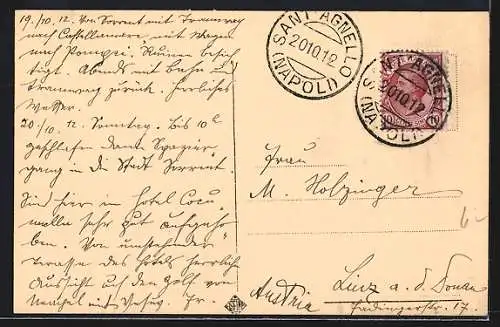 19./10. 12. Von Sorrent mit Tramway
nach Castellamare, mit Wagen
nach Pompei. Ruinen besich
tigt. Abends mit Bahn u.
tramway zurück. Herrliches
Wetter.
20./10. 12. Sonntag. Bis 10h
geschlafen dann Spazier
gang in die Stadt Sorrent.
Sind hier im Hotel Cocu
mella sehr gut aufgeho
ben. Von umstehender
Terrasse des Hotels herrlich
Aussicht auf den Golf von
Neapel mit Vesuv.
SANT'AGNELLO
20.10.12
(NAPOLI)
SANT'AGNELLO
20.10.12
(NAPOLI)
Frau
M. Holzinger
Linz a. d. Donau
Austria
Fadingerstr. 17.
6-